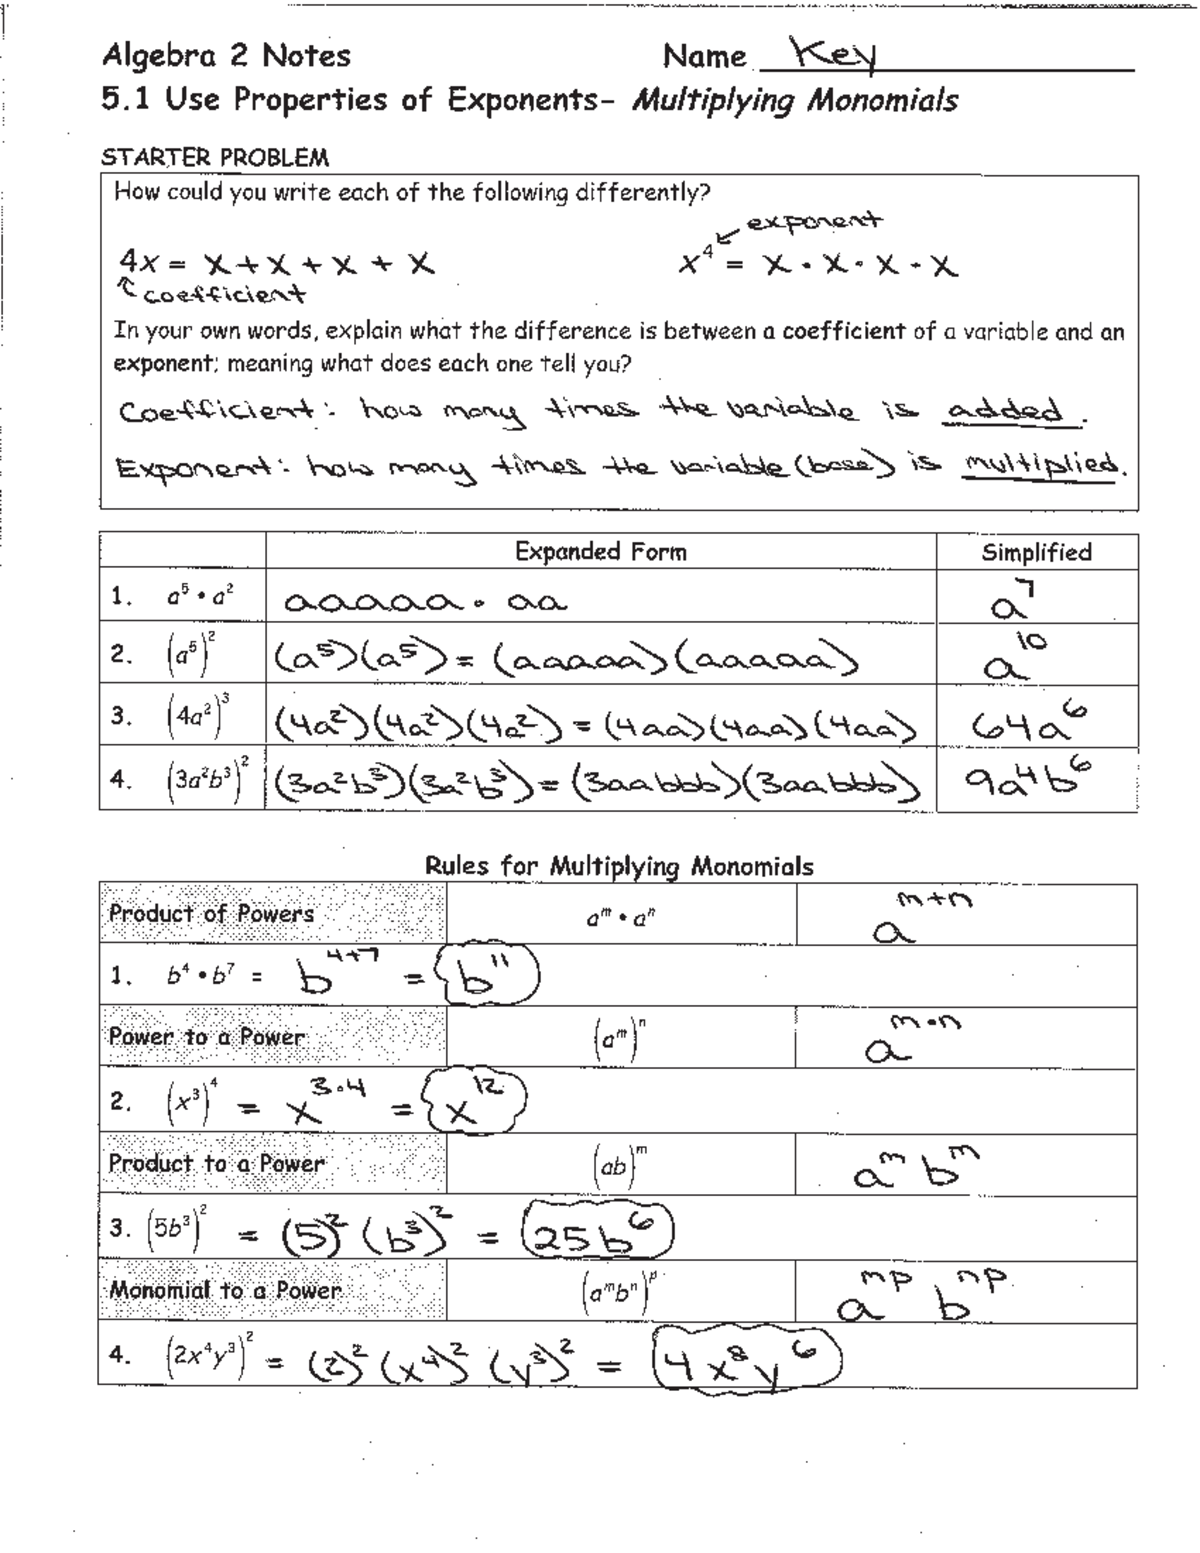 Algebra 2 Notes Name Key
5.1 Use Properties of Exponents- Multiplying Monomials
STARTER PROBLEM
How could you write each of the following differently?
exponent
4x = x + x + x + x x⁴ = x • x • x • x
coefficient
In your own words, explain what the difference is between a coefficient of a variable and an
exponent; meaning what does each one tell you?
Coefficient: how many times the variable is added.
Exponent: how many times the variable (base) is multiplied.
Expanded Form Simplified
1. a⁵ • a² aaaaa • aa a⁷
2. (a⁵)² (a⁵)(a⁵) = (aaaaa)(aaaaa) a¹⁰
3. (4a²)³ (4a²)(4a²)(4a²) = (4aa)(4aa)(4aa) 64a⁶
4. (3a²b³)² (3a²b³)(3a²b³) = (3aabbb)(3aabbb) 9a⁴b⁶
Rules for Multiplying Monomials
Product of Powers aᵐ • aⁿ aᵐ⁺ⁿ
1. b⁴ • b⁷ = b⁴⁺⁷ = b¹¹
Power to a Power (aᵐ)ⁿ a^(m•n)
2. (x³)⁴ = x^(3•4) = x¹²
Product to a Power (ab)ᵐ aᵐbᵐ
3. (5b³)² = (5)² (b³)² = 25b⁶
Monomial to a Power (aᵐbⁿ)ᵖ aᵐᵖ bⁿᵖ
4. (2x⁴y³)² = (2)² (x⁴)² (y³)² = 4x⁸y⁶